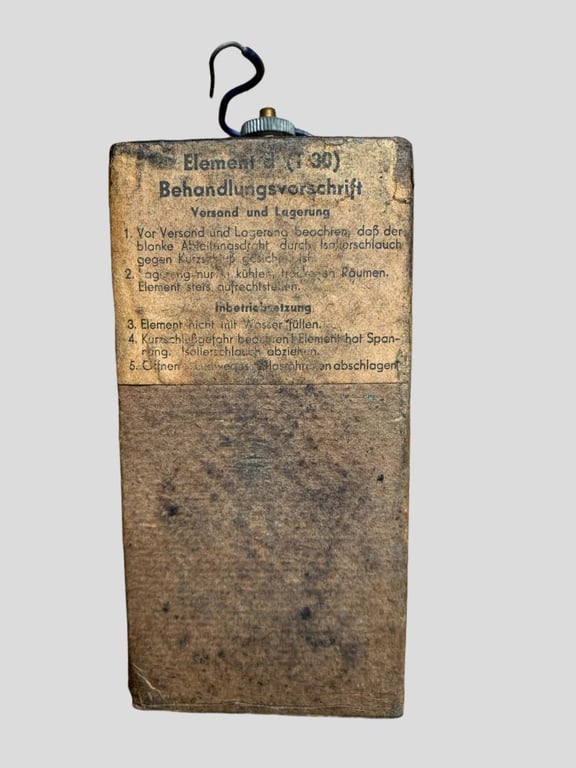 Element d (T 30)
Behandlungsvorschrift
Versand und Lagerung
1. Vor Versand und Lagerung beachten, daß der
blanke Ableitungsdraht durch Isolierschlauch
gegen Kurzschluß gesichert ist.
2. Lagerung nur in kühlen, trockenen Räumen.
Element stets aufrechtstellen.
Inbetriebsetzung
3. Element nicht mit Wasser füllen.
4. Kurzschließgefahr beachten! Element hat Span-
nung. Isolierschlauch abziehen.
5. Öffnen Glasröhrchen abschlagen